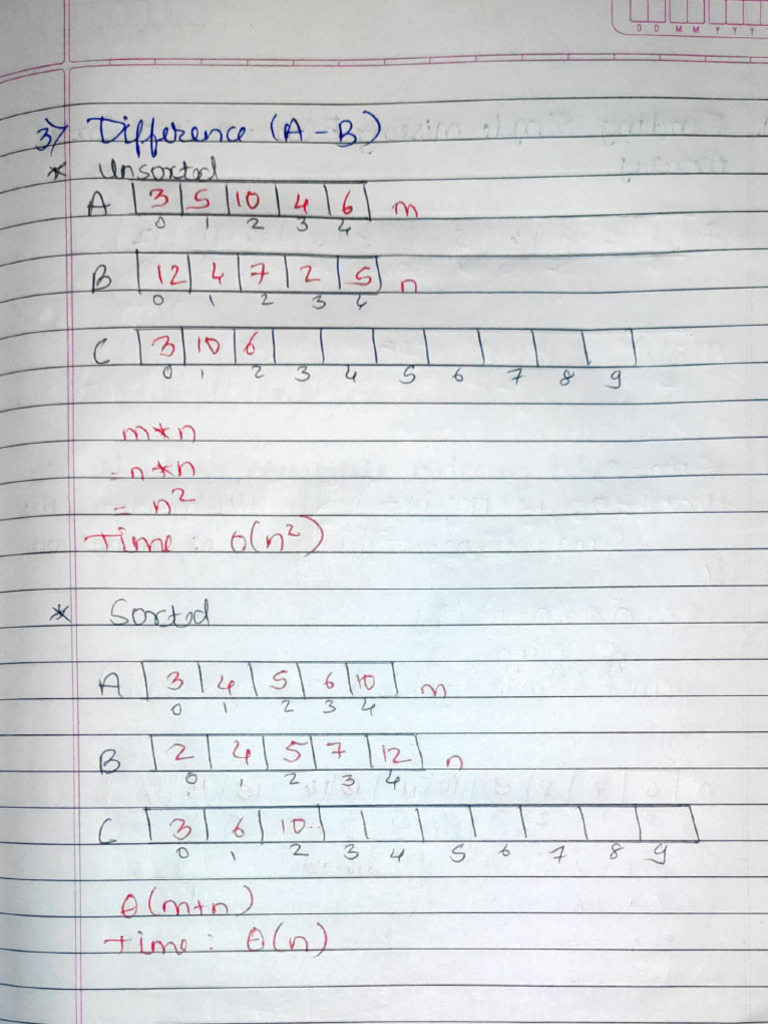 D D M M Y Y Y
3) Difference (A-B)
* Unsorted
A 3 5 10 4 6 m
0 1 2 3 4
B 12 4 7 2 5 n
0 1 2 3 4
C 3 10 6
0 1 2 3 4 5 6 7 8 9
m*n
= n*n
= n²
Time O(n²)
* Sorted
A 3 4 5 6 10 m
0 1 2 3 4
B 2 4 5 7 12 n
0 1 2 3 4
C 3 6 10
0 1 2 3 4 5 6 7 8 9
θ(m+n)
Time: θ(n)